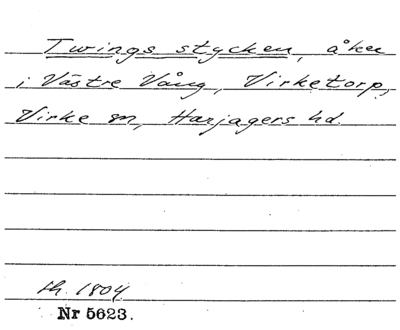 Twings stycken, åker
i Västre Vång, Virketorp,
Virke sn, Harjagers hd.
th. 1804
Nr 5623.